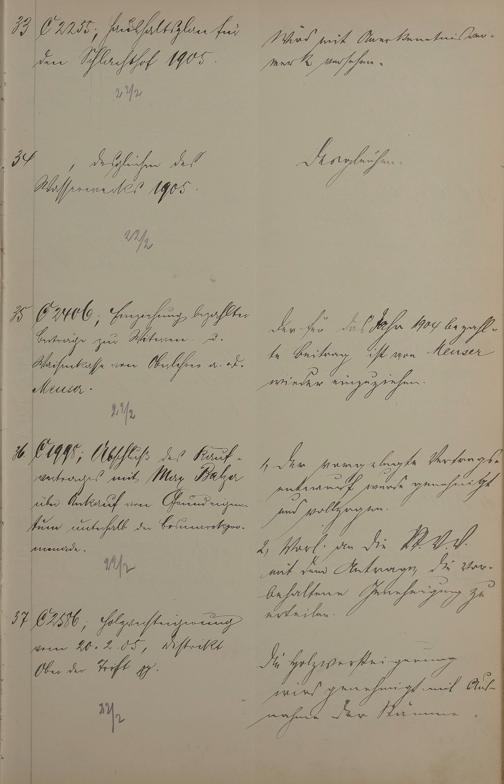 33 C 2255, Haushaltsplan für
den Schlachthof 1905.
22/2
Wird mit Anerkenntnisver-
merk versehen.
34 , desgleichen des
Wasserwerks 1905.
22/2
Desgleichen.
35 C 2406, Einziehung bezahlter
Beiträge zur Witwen u.
Waisenkasse von Oberlehrer a. D.
Menser.
22/2
Der für das Jahr 1904 bezahl-
te Beitrag ist von Menser
wieder einzuziehen.
36 C 1998; Abschluß des Kauf-
vertrages mit Max Balza
über Ankauf von Grundeigen-
tum unterhalb der Bismarckpro-
menade.
22/2
1, Der vorgelegte Vertrags-
entwurf wurde genehmigt
und vollzogen.
2, Vorl. an die St.V.V.
mit dem Antrage, die vor-
behaltene Genehmigung zu
erteilen.
37 C 2586; Holzversteigerung
vom 20.2.05, Distrikt
Ober der
22/2
Die Holzversteigerung
wird genehmigt mit Aus-
nahme der Stämme.